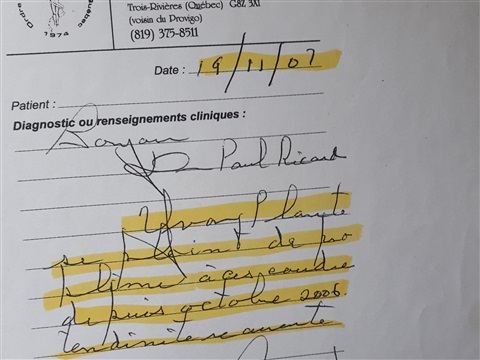 Trois-Rivières (Québec) G8Z 3X1
(voisin du Provigo)
(819) 375-8511
Ordre
québec
1974
Date : 19/11/07
Patient :
Diagnostic ou renseignements cliniques :
Dr Paul Ricard
Yvon Plante
se plaint de pro
blème à ces coudre
depuis octobre 2006.
tendinite